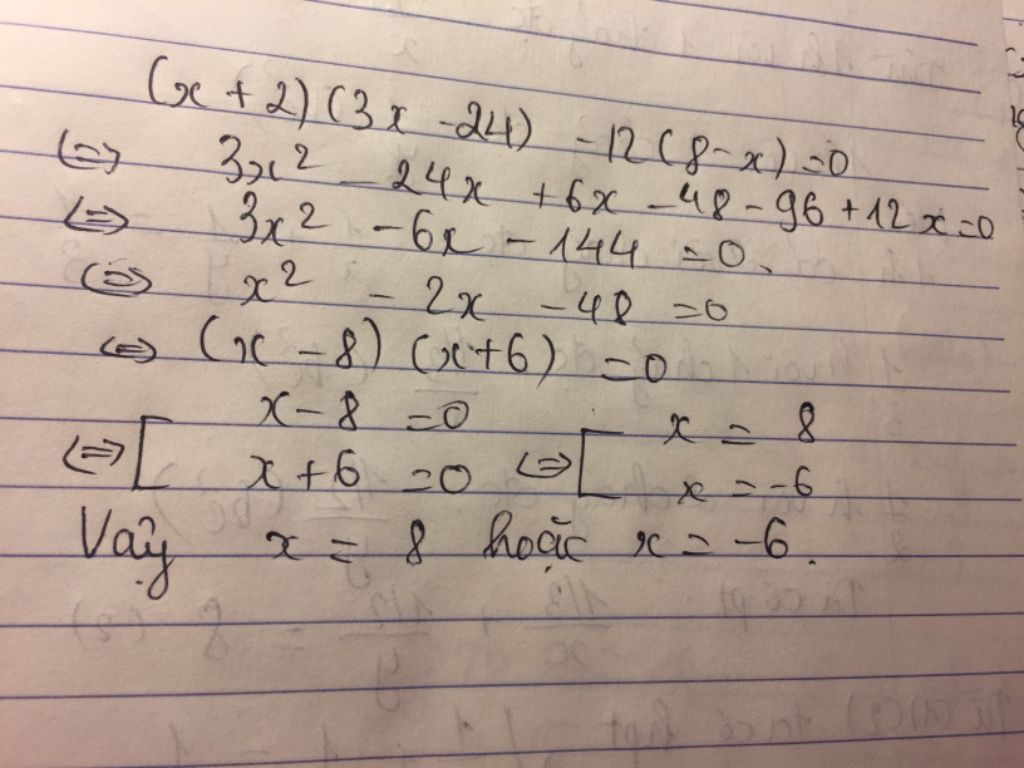 (x + 2) (3x - 24) - 12 (8 - x) = 0
⇔ 3x² - 24x + 6x - 48 - 96 + 12x = 0
⇔ 3x² - 6x - 144 = 0.
⇔ x² - 2x - 48 = 0
⇔ (x - 8) (x + 6) = 0
⇔ [ x - 8 = 0 ⇔ [ x = 8
x + 6 = 0 x = -6
Vậy x = 8 hoặc x = -6.